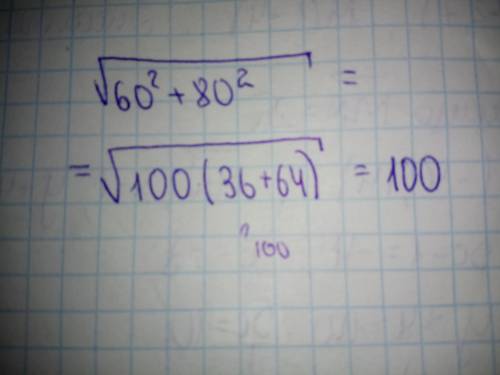 √60² + 80² =
= √100 (36+64) = 100
100